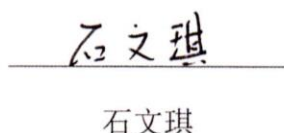 石文琪
石文琪